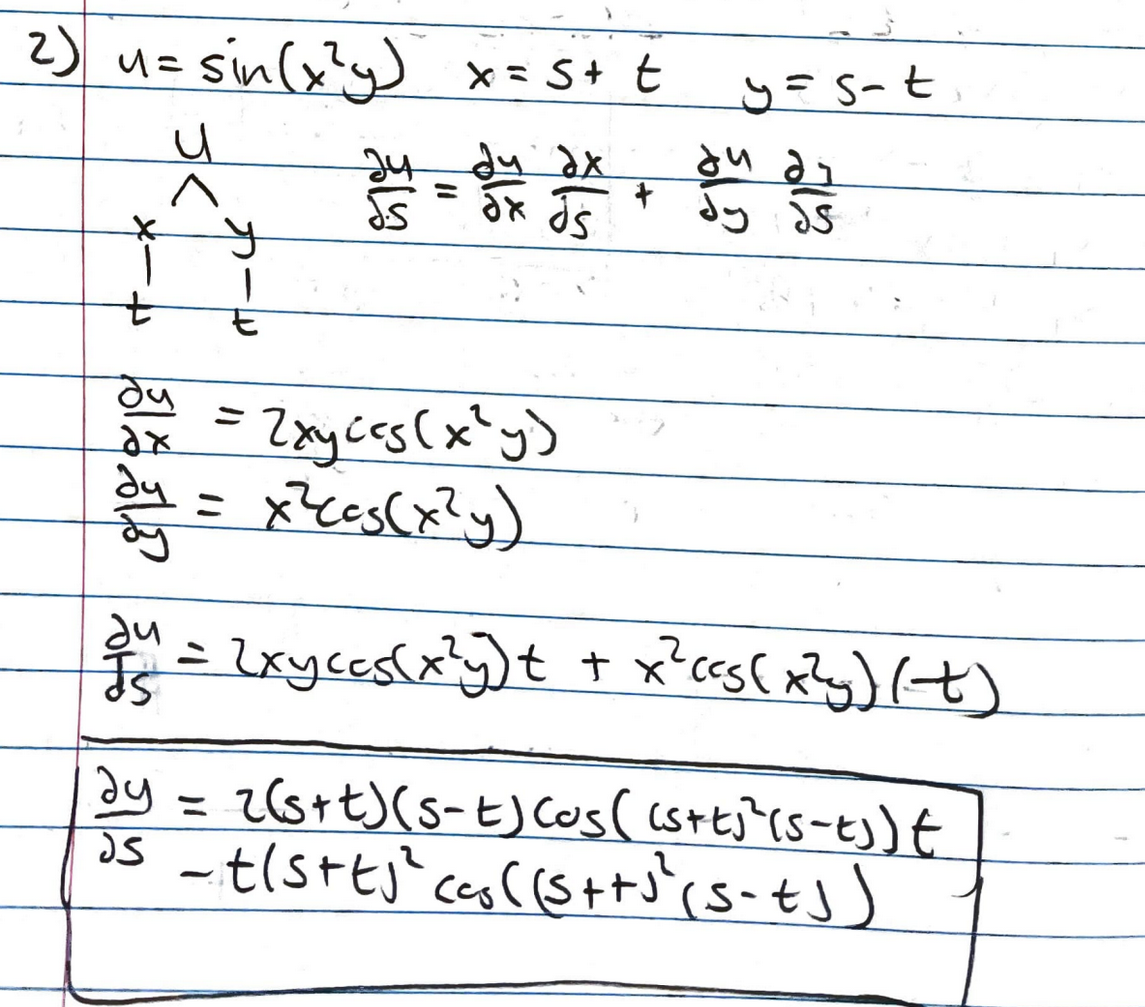 2) u = sin(x²y) x = s + t y = s - t
u
x y
t t
∂u/∂s = ∂u/∂x ∂x/∂s + ∂u/∂y ∂y/∂s
∂u/∂x = 2xycos(x²y)
∂u/∂y = x²cos(x²y)
∂u/∂s = 2xycos(x²y)t + x²cos(x²y)(-t)
∂y/∂s = 2(s+t)(s-t)cos((s+t)²(s-t))t
- t(s+t)² cos((s+t)²(s-t))